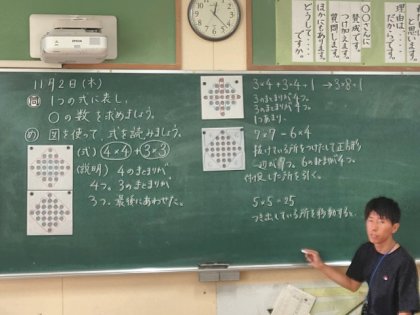 11月2日(木)
問 1つの式に表し、
○の数を求めましょう。
め 図を使って、式を読みましょう。
(式) 4×4+3×3
(説明) 4のまとまりが
4つ。3のまとまりが
3つ。最後にあわせた。
3×4+3×4+1 → 3×8+1
3のまとまりが4つ。
3のまとまりが4つ。
1つあまり。
7×7-6×4
抜けている所をつけたして正方形
一辺が7つ。6のまとまりが4つ。
付け足した所を引く。
5×5=25
つき出している所を移動すると
○○さんに
賛成です。
つけ加えます。
質問します。
ほかにもあります。
どうして…
ですか。
と思います。
理由は…
だからです。